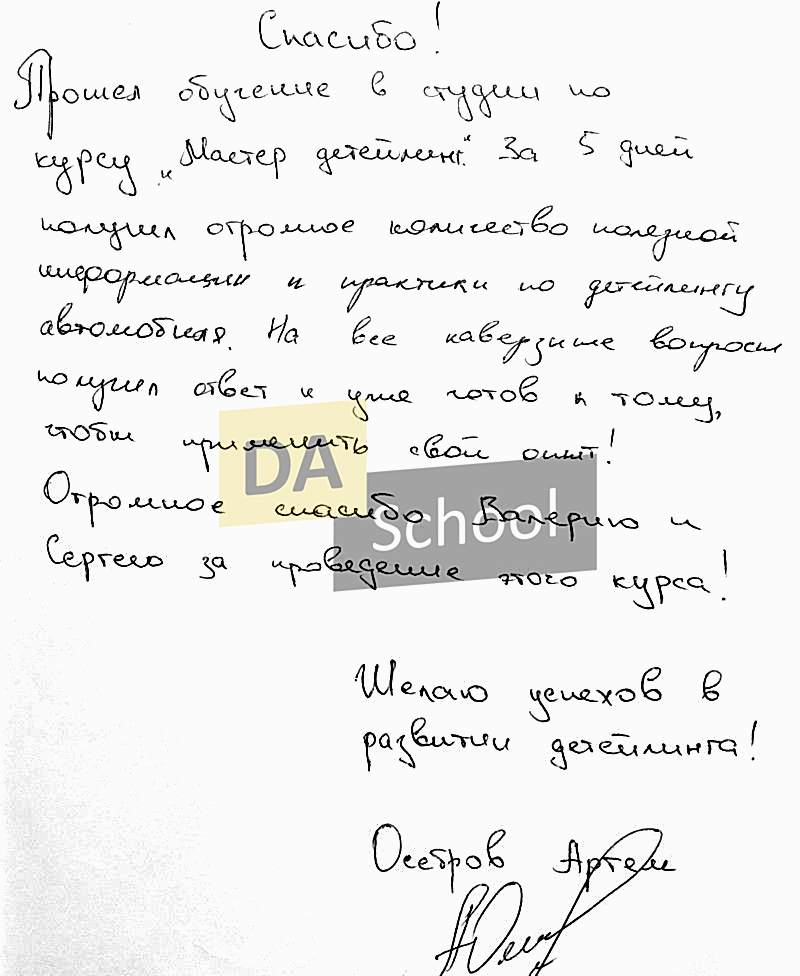 Спасибо!
Прошел обучение в студии по
курсу „Мастер детейлинг“. За 5 дней
получил огромное количество полезной
информации и практики по детейлингу
автомобиля. На все каверзные вопросы
получил ответ и уже готов к тому,
чтобы применить свой опыт!
DA
Огромное спасибо Валерию и
School
Сергею за проведение этого курса!
Желаю успехов в
развитии детейлинга!
Осетров Артем